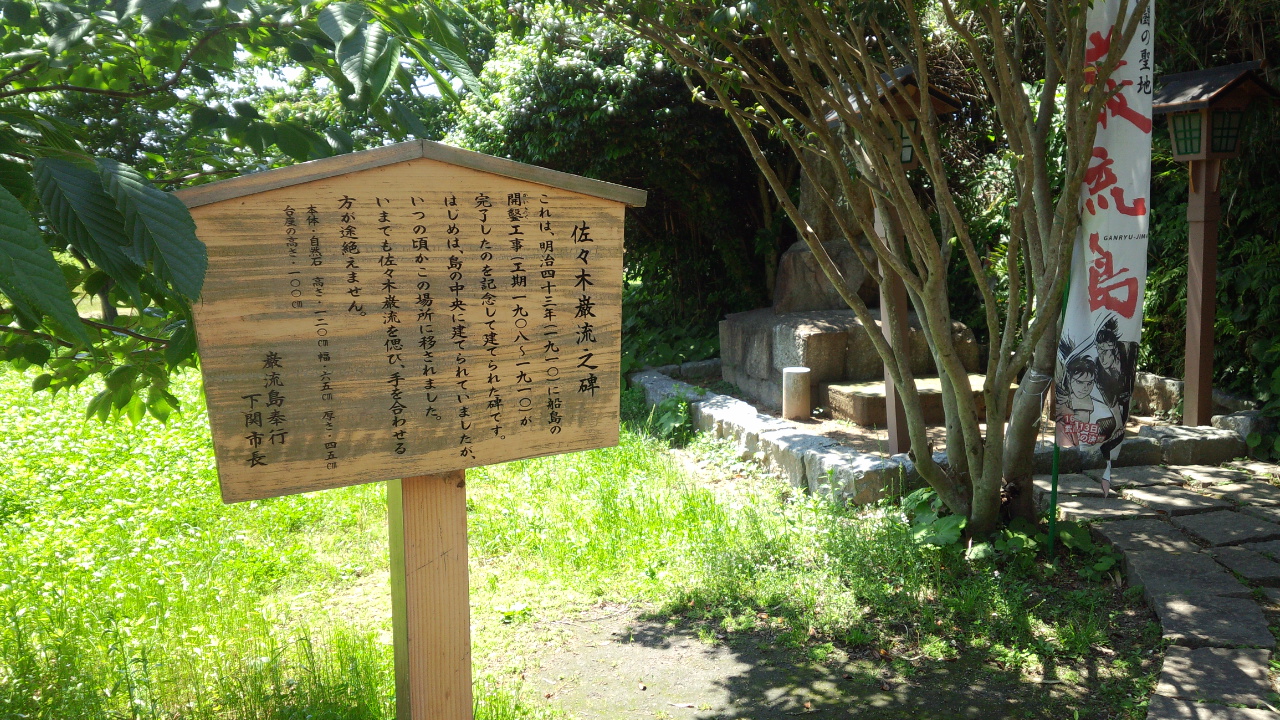 佐々木巌流之碑
これは、明治四十三年（一九一〇）に船島の
開墾工事（工期一九〇八～一九一〇）が
かいこん
完了したのを記念して建てられた碑です。
はじめは、島の中央に建てられていましたが、
いつの頃かこの場所に移されました。
いまでも佐々木巌流を偲び、手を合わせる
方が途絶えません。
本体・自然石 高さ・一二〇㎝ 幅・六五㎝ 厚さ・四五㎝
台座の高さ・一〇〇㎝
巌流島奉行
下関市長
の聖地
巌流島
GANRYU-JIM